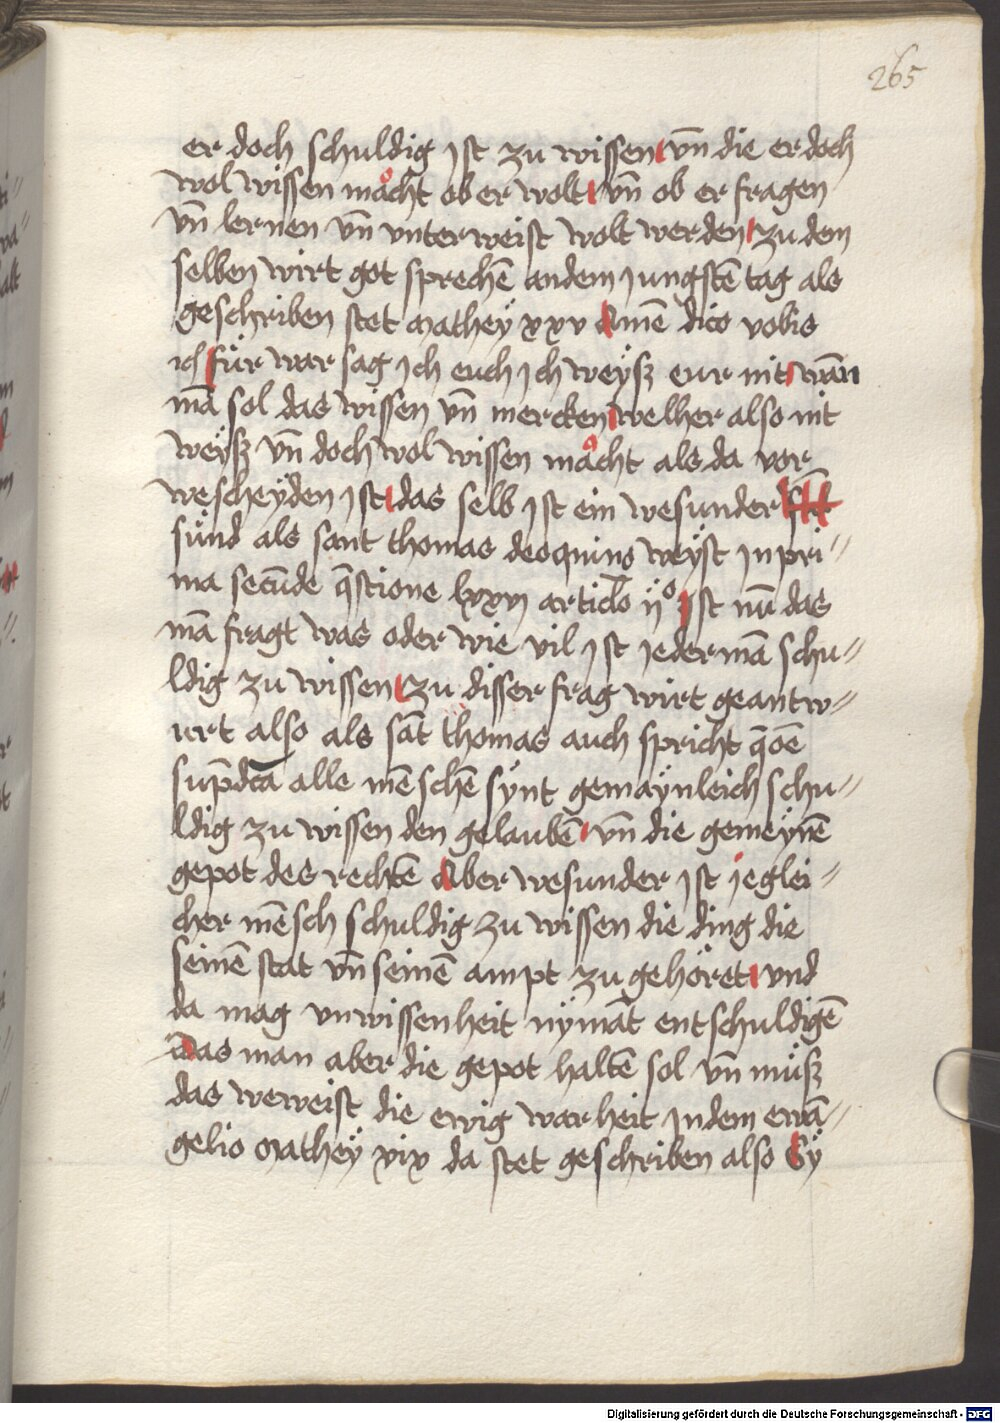 265
er doch schuldig ist zu wissen vn̄ die er doch
wol wissen mǎcht ob er wolt vn̄ ob er fragen
vn̄ lernen vn̄ vnterweist wolt werden zu dem
selben wirt got sprechē an dem jungstē tag als
geschriben stet Mathey xxv Amē dico vobis
ich für war sag ich euch ich weÿsz eur nit wān
mā sol das wissen vn̄ mercken welher also nit
weÿsz vn̄ doch wol wissen mǎcht als da vor
wescheÿden ist das selb ist ein wesunder
sünd als sant thomas de aquino weÿst in pri〃
ma secūde q̄stione lxxvj articło ijº Ist nū das
mā fragt was oder wie vil ist jederman schu〃
ldig zu wissen zu disser frag wirt geantw〃
urt also als sāt thomas auch spricht q̄oē
sup̄dc̄a alle mēschē sÿnt gemaÿnleich schu〃
ldig zu wissen den gelaubē vn̄ die gemeÿnē
gepot des rechtē Aber wesunder ist jeglei〃
cher mēsch schuldig zu wissen die ding die
seinē stat vn̄ seinē ampt zu gehöret vnd
da mag vnwissenheit nÿmāt entschuldigē
Das man aber die gepot haltē sol vn̄ müsz
das weweist die ewig warheit in dem ewā〃
gelio Mathey xix da stet geschriben also Sÿ
Digitalisierung gefördert durch die Deutsche Forschungsgemeinschaft - DFG